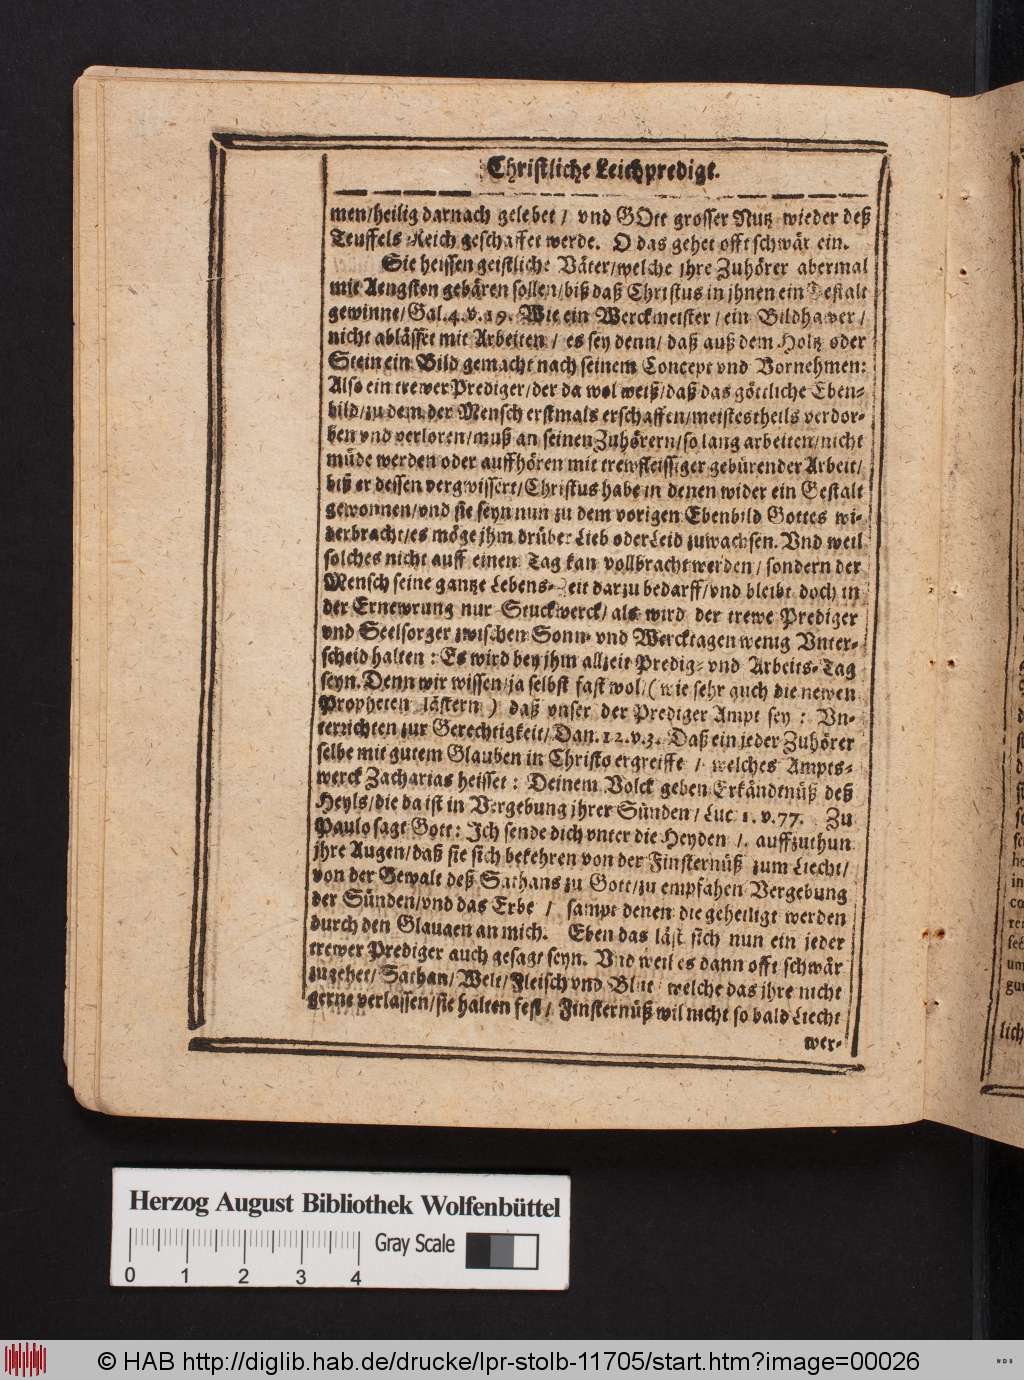 Christliche Leichpredigt.
men/heilig darnach gelebet / vnd GOtt grosser Nutz wieder deß
Teuffels Reich geschaffet werde. O das gehet offt schwär ein.
Sie heissen geistliche Väter/welche jhre Zuhörer abermal
mit Aengsten gebären sollen/biß daß Christus in jhnen ein Gestalt
gewinne/Gal.4.v.19. Wie ein Werckmeister / ein Bildhawer /
nicht ablässet mit Arbeiten / es sey denn/ daß auß dem Holtz oder
Stein ein Bild gemacht nach seinem Concept vnd Vornehmen:
Also ein trewer Prediger/der da wol weiß/daß das göttliche Eben-
bild/zu dem der Mensch erstmals erschaffen/meistestheils verdor-
ben vnd verloren/muß an seinen Zuhörern/so lang arbeiten/nicht
müde werden oder auffhören mit trewfleissiger gebürender Arbeit/
biß er dessen vergwissert/Christus habe in denen wider ein Gestalt
gewonnen/vnd sie seyn nun zu dem vorigen Ebenbild Gottes wi-
derbracht/es möge jhm drüber Lieb oder Leid zuwachsen. Vnd weil
solches nicht auff einen Tag kan vollbracht werden/ sondern der
Mensch seine gantze Lebens-Zeit darzu bedarff/vnd bleibt doch in
der Ernewrung nur Stuckwerck/ als wird der trewe Prediger
vnd Seelsorger zwischen Sonn- vnd Wercktagen wenig Vnter-
scheid halten : Es wird bey jhm allzeit Predig- vnd Arbeits-Tag
seyn. Denn wir wissen/ja selbst fast wol/( wie sehr auch die newen
Propheten lästern ) daß vnser der Prediger Ampt sey : Vn-
terrichten zur Gerechtigkeit/ Dan.12.v.3. Daß ein jeder Zuhörer
selbe mit gutem Glauben in Christo ergreiffe / welches Ampts-
werck Zacharias heisset : Deinem Volck geben Erkändtnüß deß
Heyls/die da ist in Vergebung jhrer Sünden / Luc 1. v.77. Zu
Paulo sagt Gott: Ich sende dich vnter die Heyden /. auffzuthun
jhre Augen/daß sie sich bekehren von der Finsternüß zum Liecht/
von der Gewalt deß Sathans zu Gott/zu empfahen Vergebung
der Sünden/vnd das Erbe / sampt denen die geheiligt werden
durch den Glauaen an mich. Eben das läst sich nun ein jeder
trewer Prediger auch gesagt seyn. Vnd weil es dann offt schwär
zugehet/ Sathan/ Welt/ Fleisch vnd Blut/ welche das jhre nicht
gerne verlassen/sie halten fest/ Finsternüß wil nicht so bald Liecht
wer-
lich
Herzog August Bibliothek Wolfenbüttel
0 1 2 3 4
Gray Scale
© HAB http://diglib.hab.de/drucke/lpr-stolb-11705/start.htm?image=00026